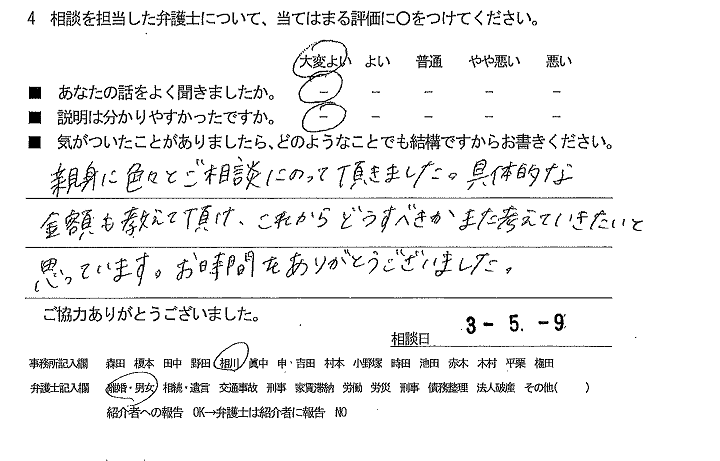 4 相談を担当した弁護士について、当てはまる評価に〇をつけてください。
大変よい よい 普通 やや悪い 悪い
■ あなたの話をよく聞きましたか。 － － － － －
■ 説明は分かりやすかったですか。 － － － － －
■ 気がついたことがありましたら、どのようなことでも結構ですからお書きください。
親身に色々とご相談にのって頂きました。具体的な
金額も教えて頂け、これからどうすべきかまた考えていきたいと
思っています。お時間をありがとうございました。
ご協力ありがとうございました。
相談日 3-5.-9
事務所記入欄 森田 榎本 田中 野田 相川 眞中 申・吉田 村本 小野塚 時田 池田 赤木 木村 平栗 権田
弁護士記入欄 離婚・男女 相続・遺言 交通事故 刑事 家賃滞納 労働 労災 刑事 債務整理 法人破産 その他( )
紹介者への報告 OK→弁護士は紹介者に報告 NO